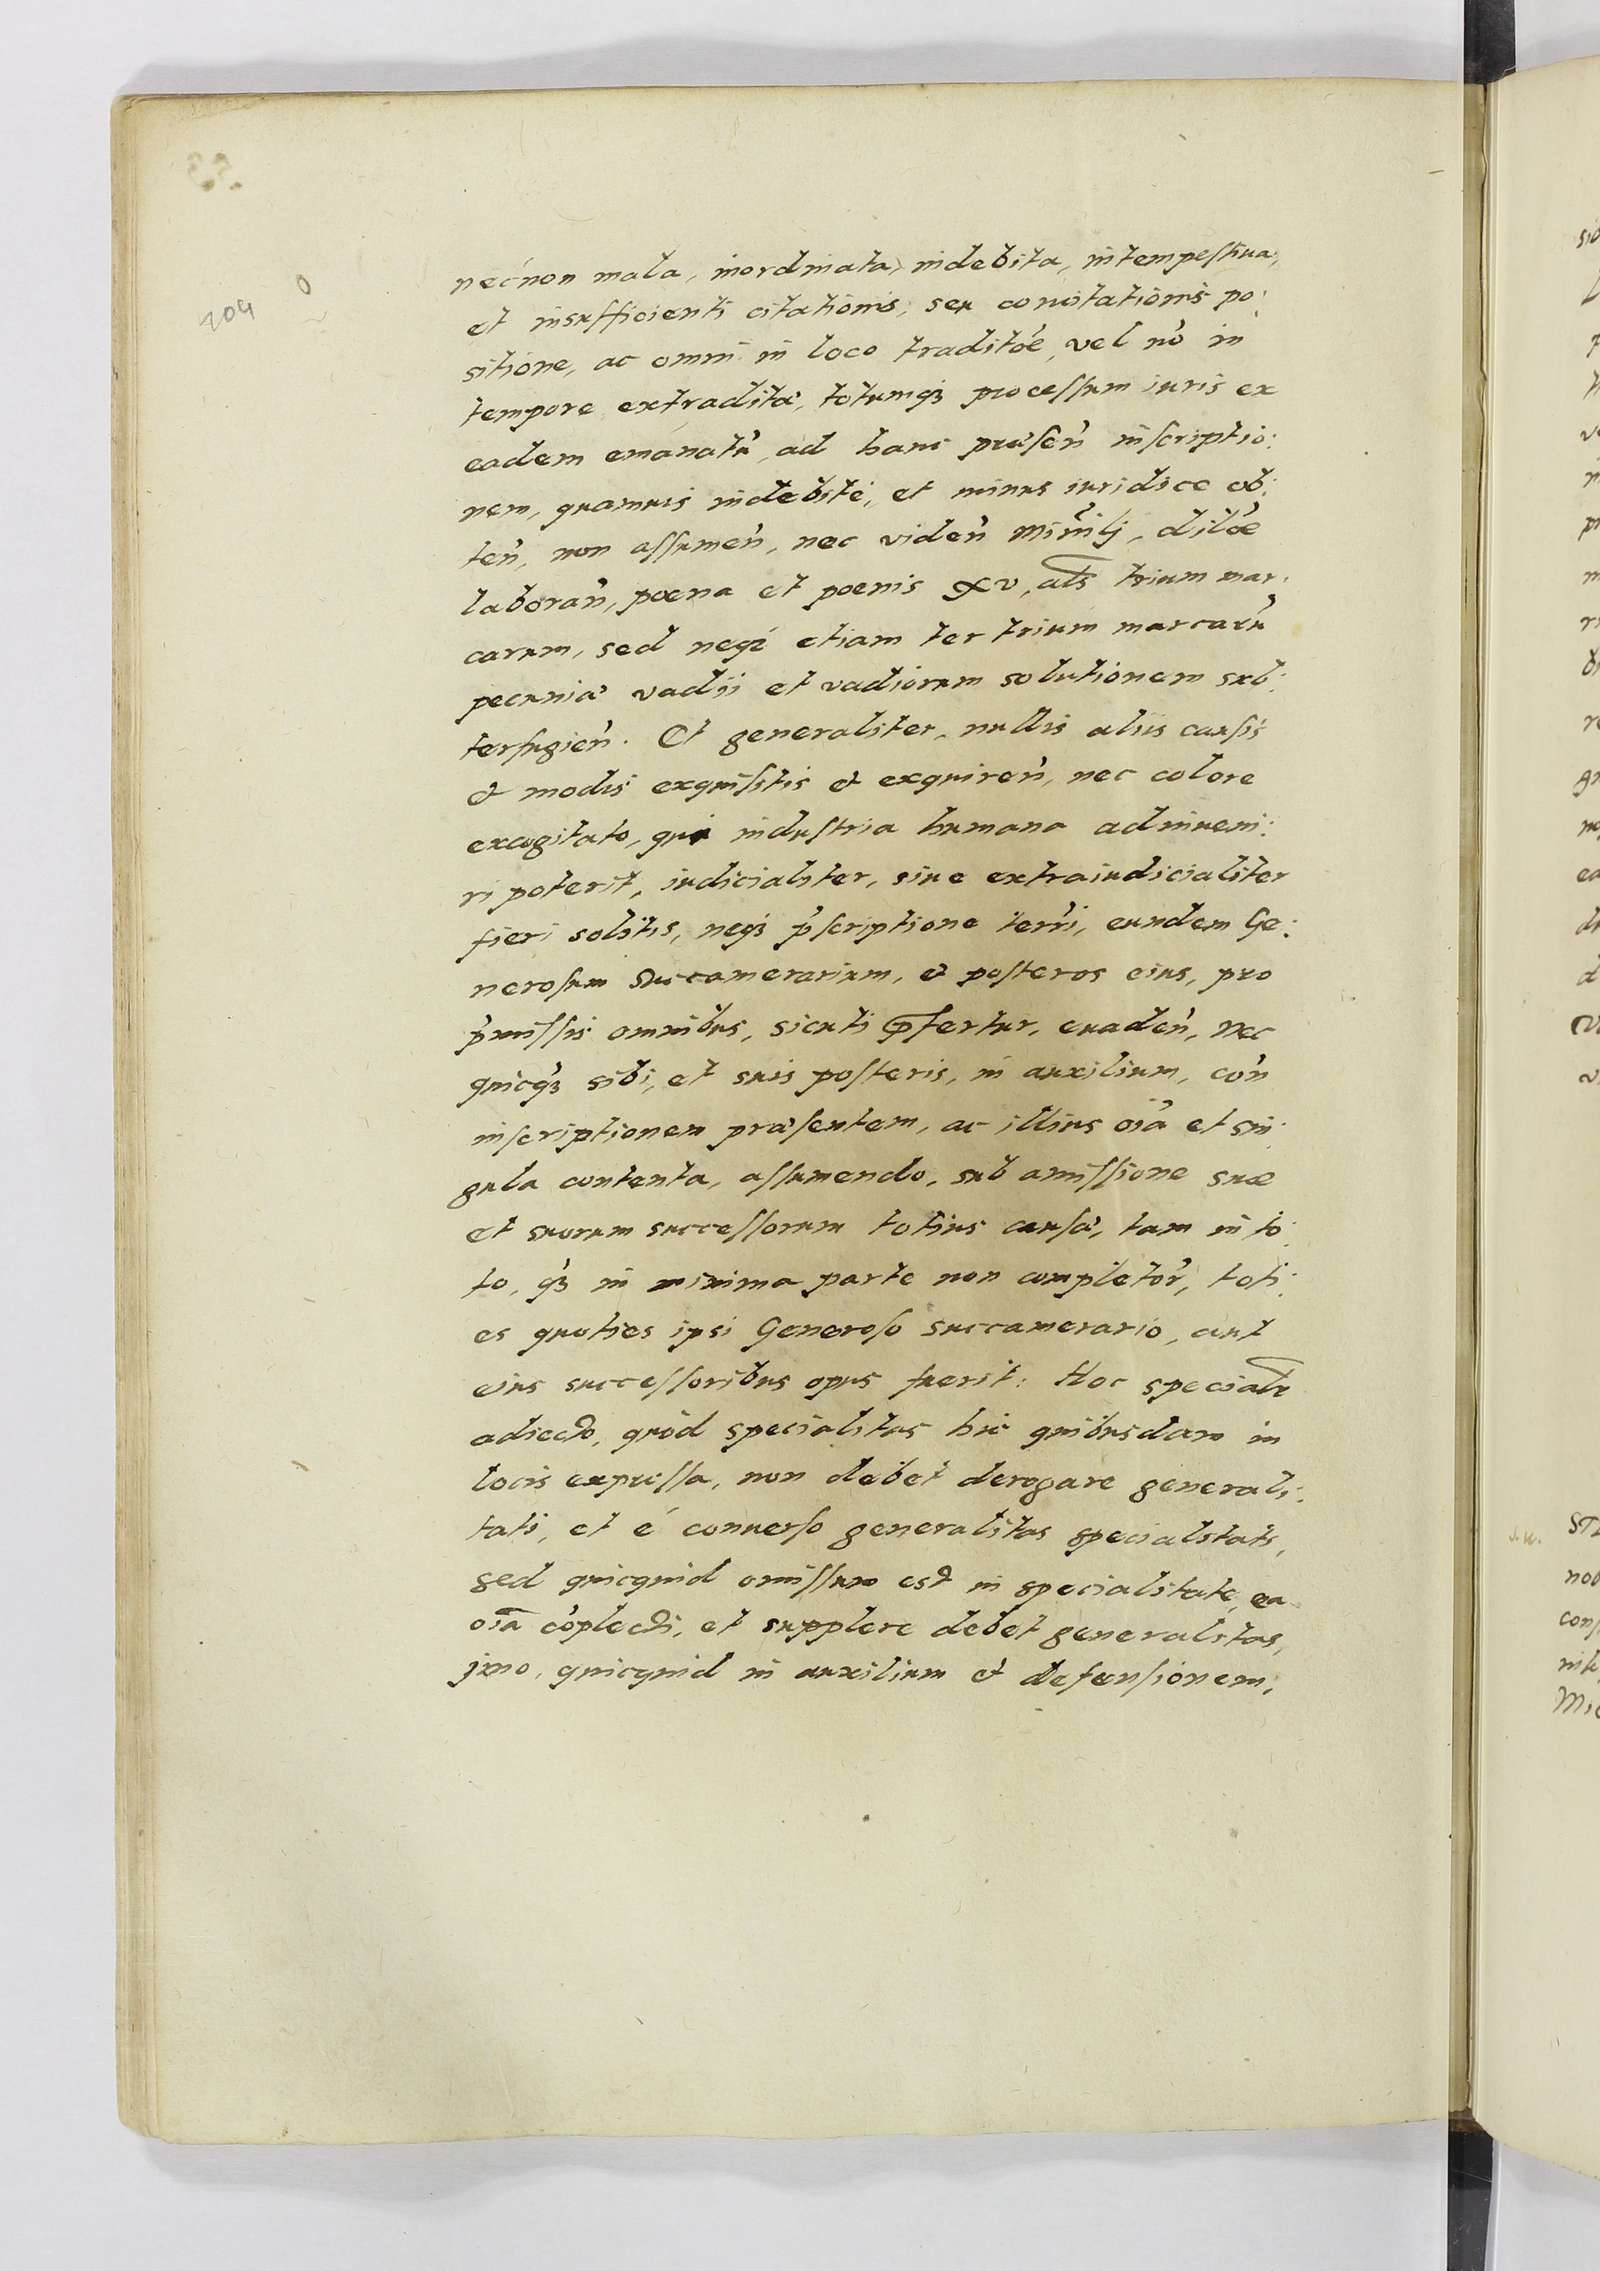 104
necnon mala, inordinata, indebita, intempestiua,
et insufficienti citationis, seu conuitationis po:
sitione, ac omni in loco traditōe, vel nō in
tempore extradita, totumq3 processum iuris ex
eadem emanatū, ad hanc præsen̄ inscriptio:
nem, quamuis indebitè, et minus iuridice ob:
ten̄, non assumen̄, nec viden̄ dilōe
laboran̄, poena et poenis xv, als trium mar:
carum, sed neq3 etiam ter trium marcarū
pecuniæ vadii et vadiorum solutionem sub:
terfugien̄. Et generaliter, nullis aliis causis
et modis exquisitis et exquiren̄, nec colore
excogitato, qui industria humana adinueni:
ri poterit, iudicialiter, siue extraiudicialiter
fieri solitis, neq3 p̄scriptione terri, eundem Ge:
nerosum Succamerarium, et posteros eius, pro
p̄missis omnibus, sicuti p̄fertur, euaden̄, nec
quicq3 sibi, et suis posteris, in auxilium, con̄
inscriptionem præsentem, ac illius oīa et sin:
gula contenta, assumendo, sub amissione suæ
et suorum successorum totius causæ, tam in to:
to, q3 in minima parte non completōr, toti:
es quoties ipsi Generoso Succamerario, aut
eius successoribus opus fuerit: Hoc specialr
adiecto, quòd specialitas hic quibusdam in
locis expressa, non debet derogare generali:
tati, et è conuerso generalitas specialitati,
sed quicquid omissum est in specialitate, ea
oīa cōplecti, et supplere debet generalitas,
imo, quicquid in auxilium et defensionem,